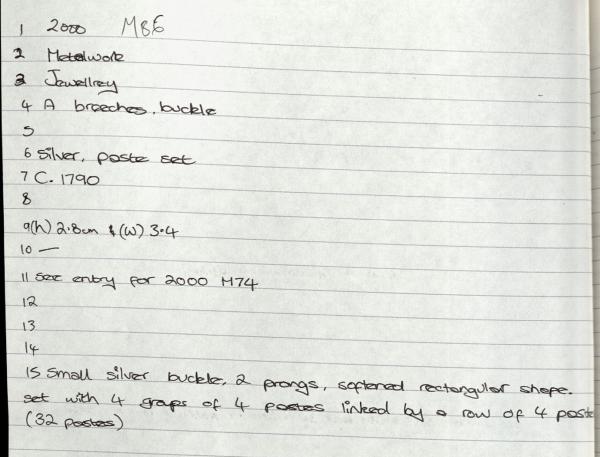 1 2000 M86
2 Metalwork
3 Jewellrey
4 A breeches buckle
5
6 Silver, paste set
7 C. 1790
8
9(h) 2.8cm & (w) 3.4
10 —
11 See entry for 2000 M74
12
13
14
15 Small silver buckle, 2 prongs, softened rectangular shape.
set with 4 groups of 4 pastes linked by a row of 4 paste
(32 pastes)